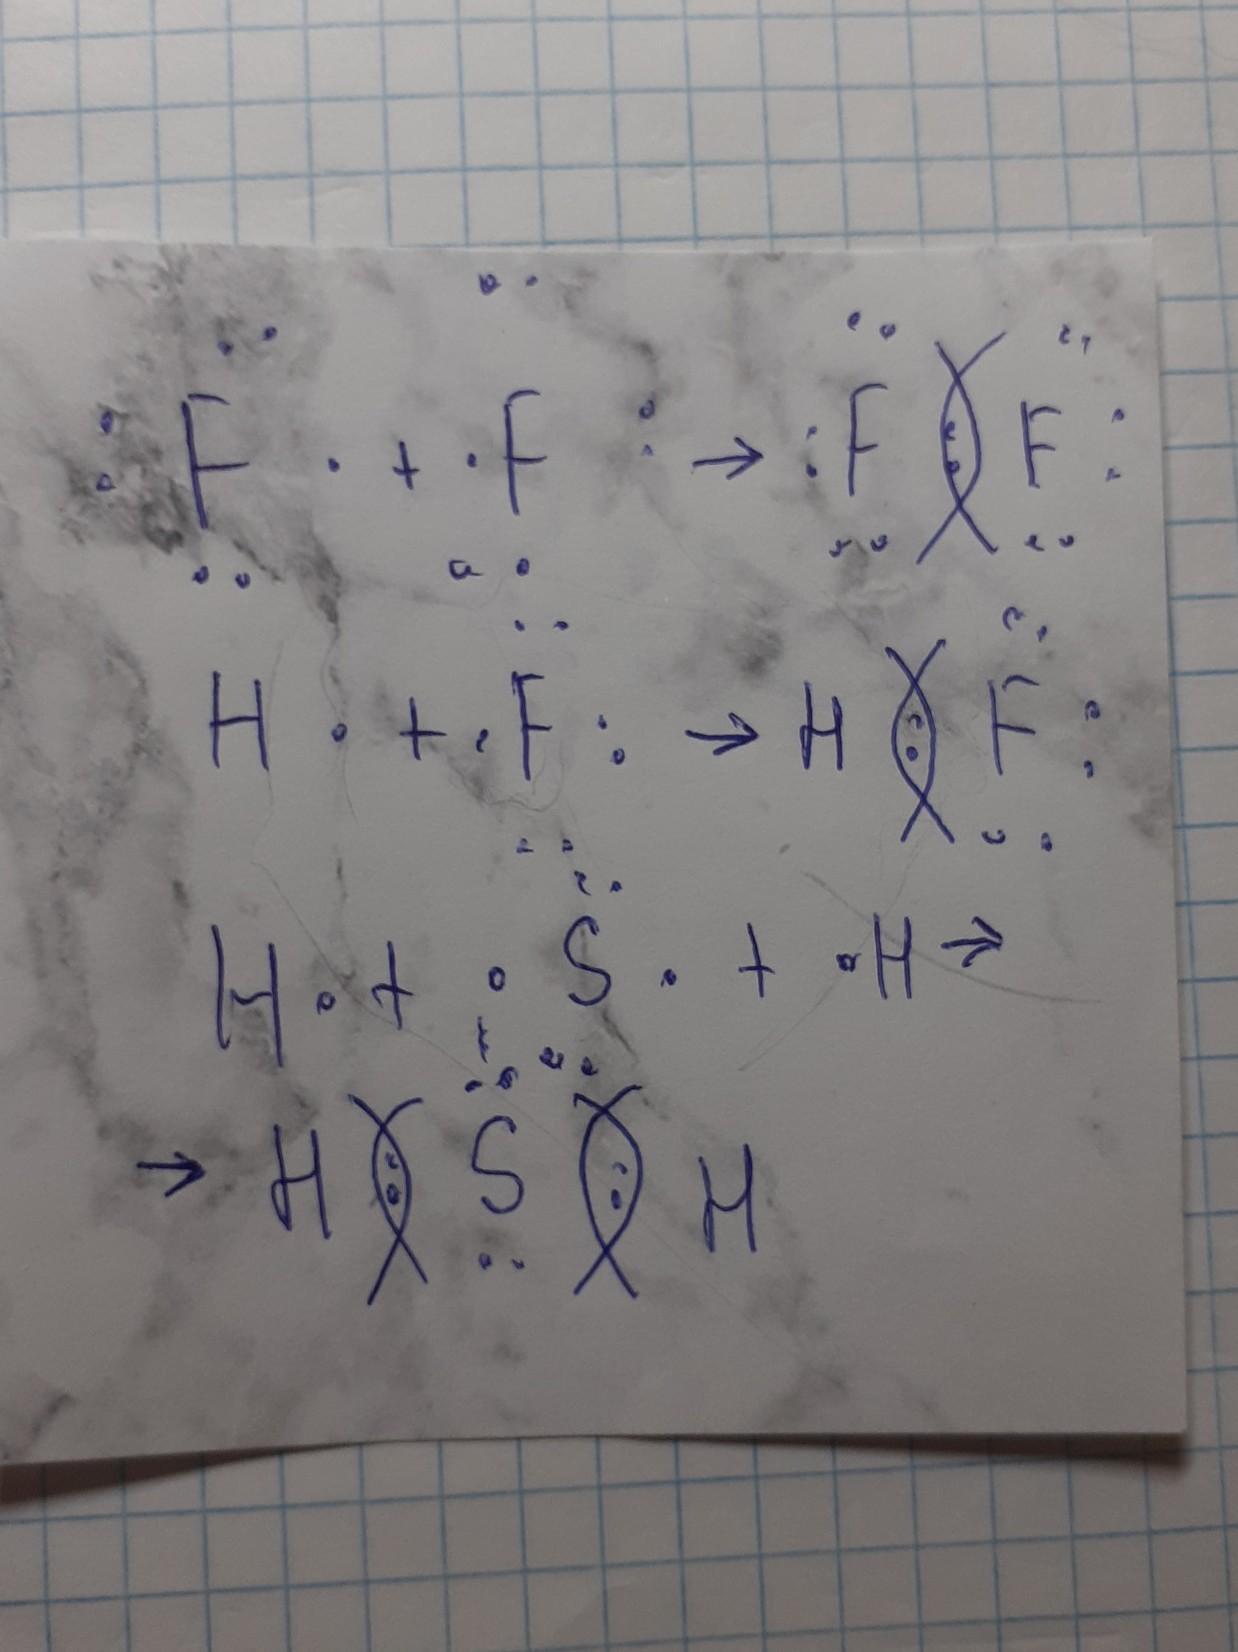 :F̤̈· + ·F̤̈: → :F̤̈(:)F̤̈:
H· + ·F̤̈: → H(:)F̤̈:
H· + ·S̤̈· + ·H →
→ H(:)S̤̈(:)H